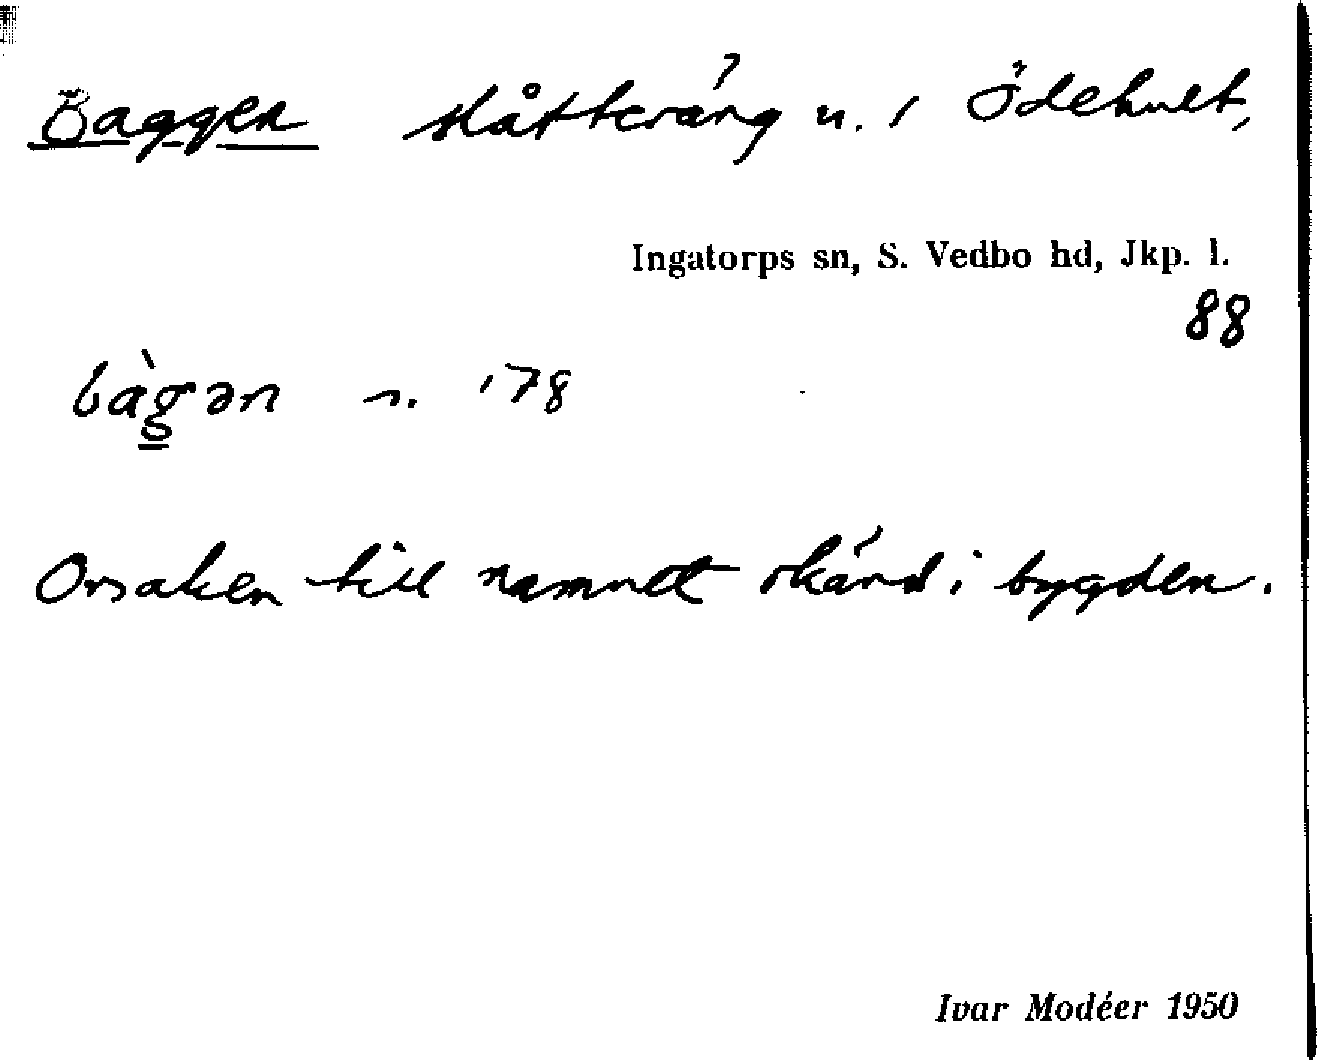 Baggen slåtteräng n. i Ödehult,
Ingatorps sn, S. Vedbo hd, Jkp. l.
88
bàg̳ən n. '78
Orsaken till namnet okänd i bygden.
Ivar Modéer 1950